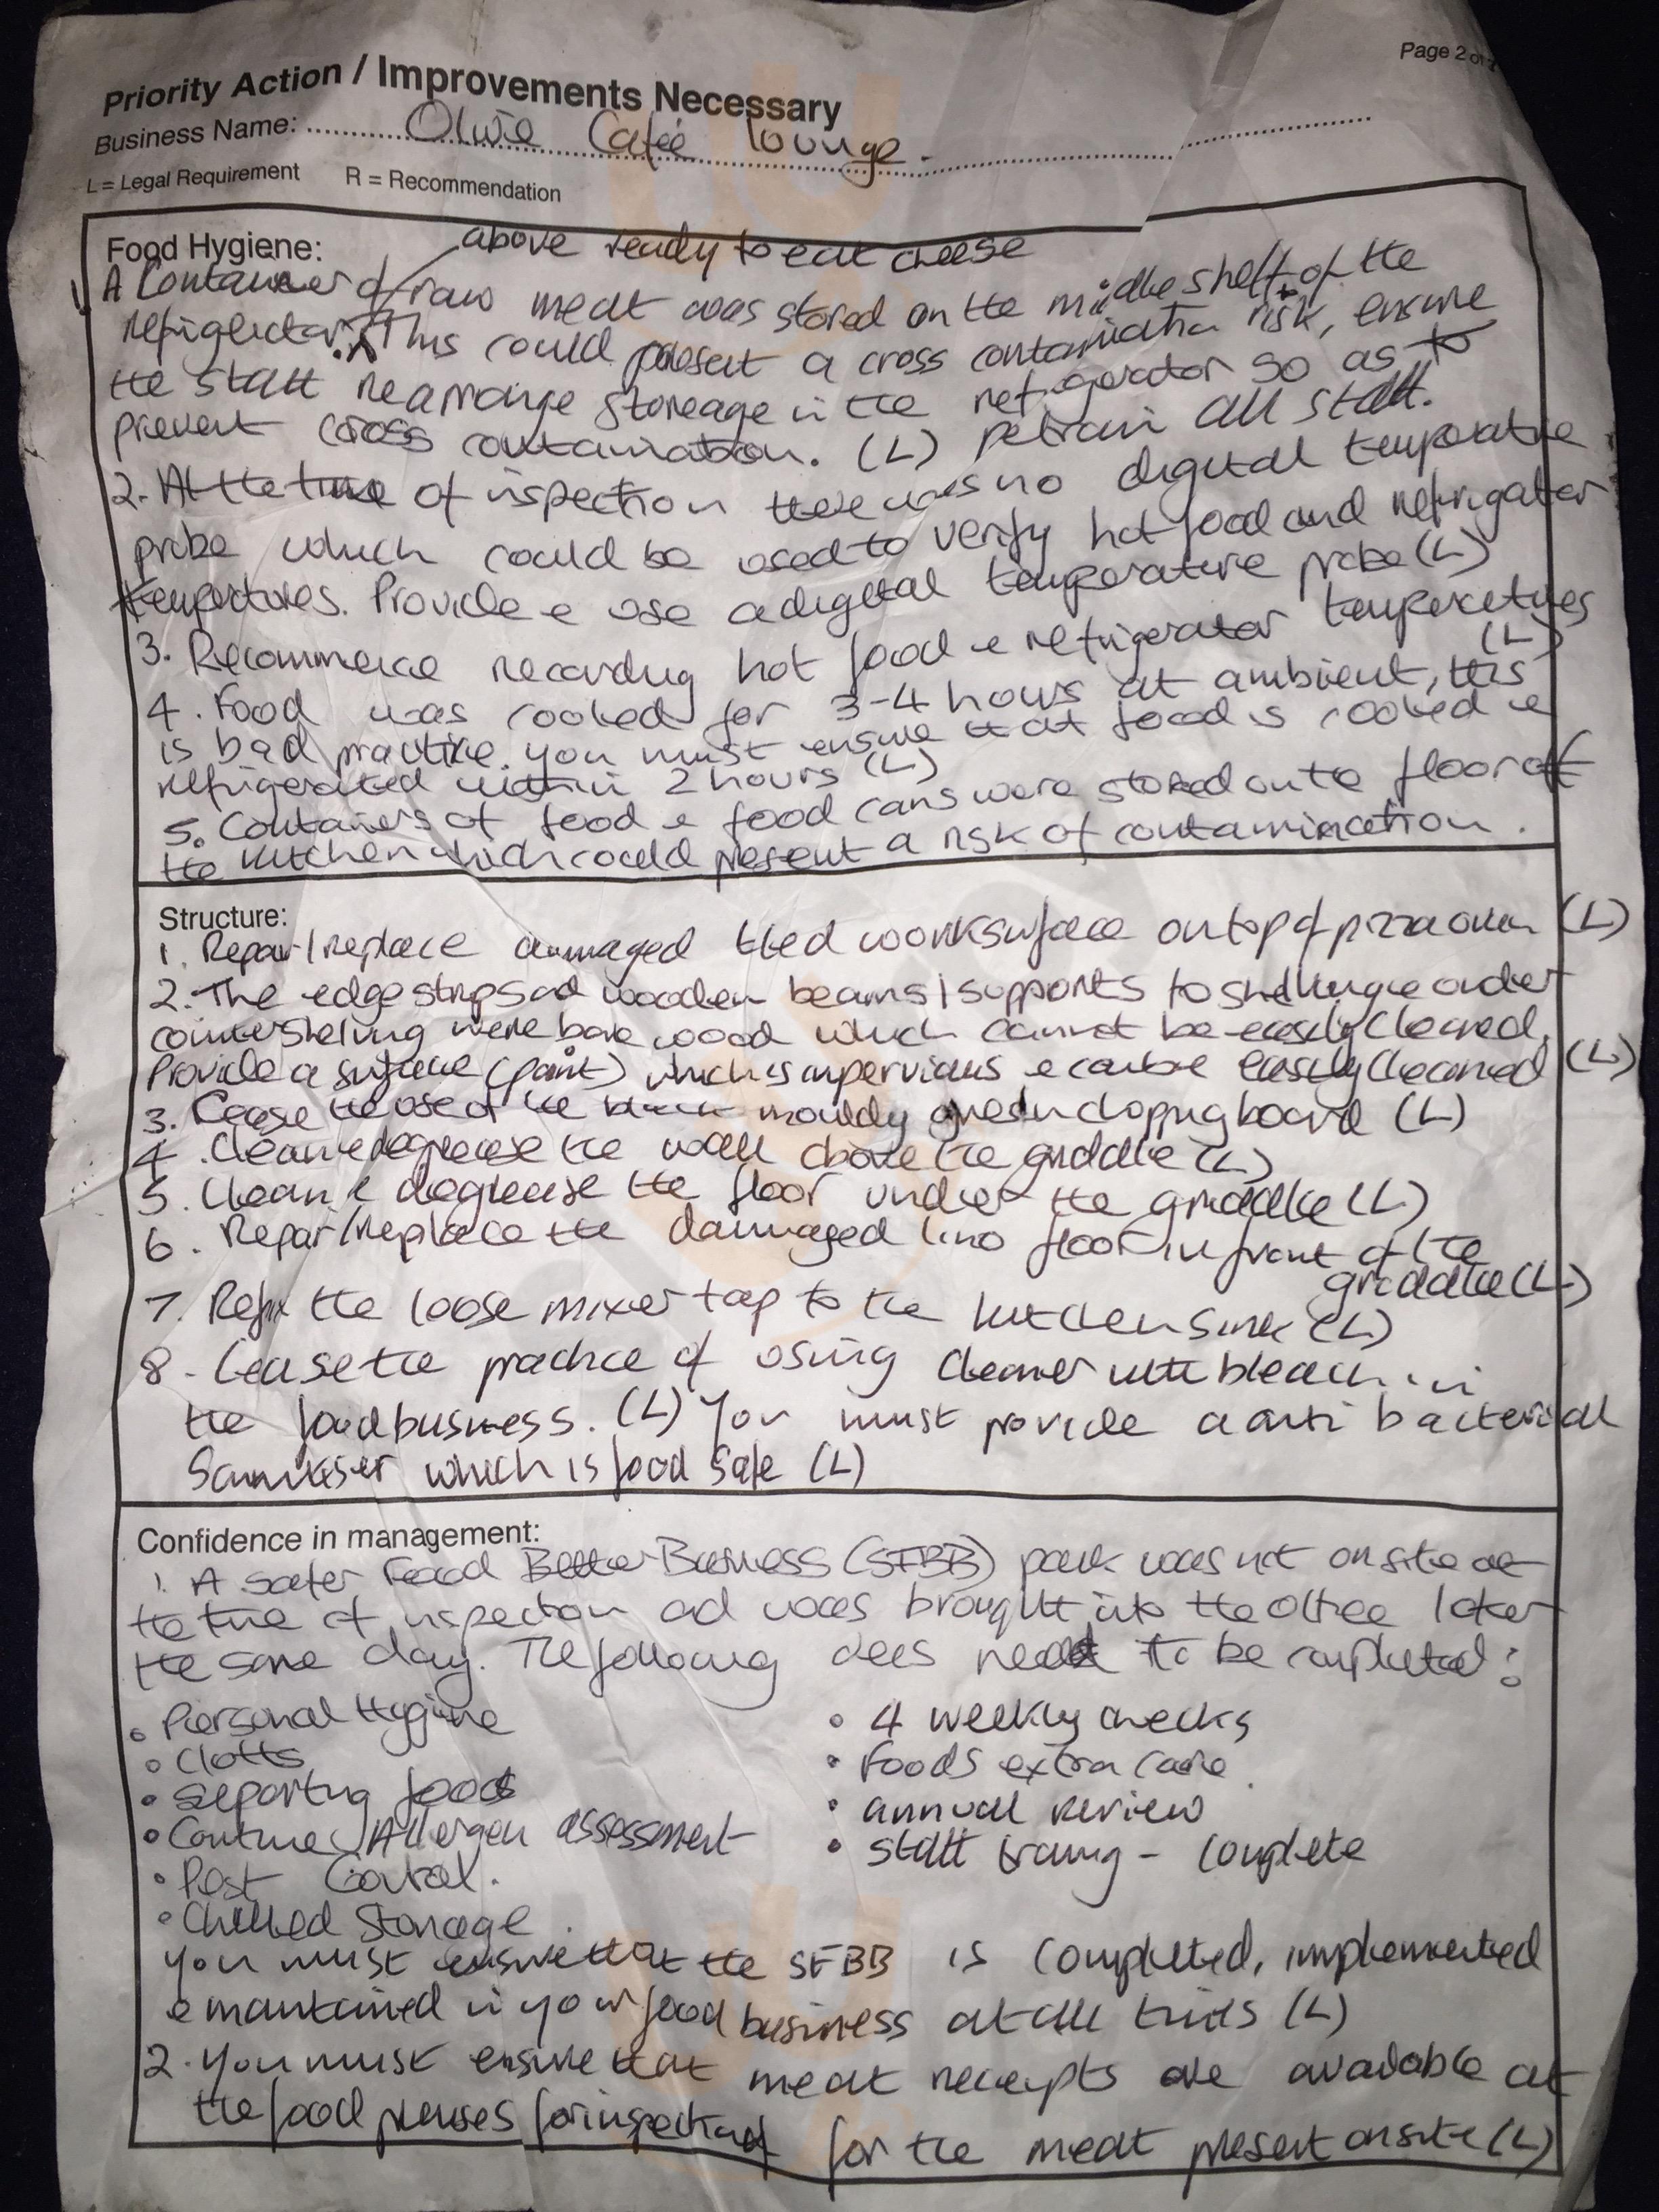 Page 2 of
Priority Action / Improvements Necessary
Business Name: Olive Cafeé lounge.
L = Legal Requirement R = Recommendation
Food Hygiene:
above ready to eat cheese
1. A Container of raw meat was stored on the middle shelf of the
refrigerator. This could present a cross contamination risk, ensure
the staff rearrange storeage in the refrigerator so as to
prevent cross contamination. (L) retrain all staff.
2. At the time of inspection there was no digital temperature
probe which could be used to verify hot food and refrigerator
tempertures. Provide e use a digital temperature probe (L)
3. Recommence recording hot food e refrigerator temperatures
(L)
4. Food was cooled for 3-4 hours at ambient, this
is bad practice. you must ensure that food is cooled e
refrigerated within 2 hours (L)
5. Containers of food e food cans were stored onto floor of
the kitchen which could present a risk of contamination.
Structure:
1. Repair/replace damaged tiled worksurface on top of pizza oven (L)
2. The edge strips and wooden beams/supports to shelving e under
counter shelving were bare wood which cannot be easily cleaned.
Provide a surface (paint) which is impervious e can be easily cleaned (L)
3. Cease the use of the black mouldy green chopping board (L)
4. Clean e degrease the wall above the griddle (L)
5. Clean e degrease the floor under the griddle (L)
6. Repair/replace the damaged lino floor in front of the
griddle (L)
7. Refix the loose mixer tap to the kitchen sink (L)
8 - Cease the practice of using cleaner with bleach in
the food business. (L) You must provide a anti bacterial
Sanitiser which is food safe (L)
Confidence in management:
1. A Safer Food Better Business (SFBB) pack was not on site at
the time of inspection and was brought into the office later
the same day. The following does need to be completed:
• Personal Hygiene
• Cloths
• separting foods
• Continue Allergen assessment
• Pest Control.
• Chilled Storage.
• 4 weekly checks
• Foods extra care.
• annual review
• staff training - complete
you must ensure that the SFBB is completed, implemented
e maintained in your food business at all times (L)
2. you must ensure that meat receipts are available at
the food premises for inspection for the meat present on site (L)